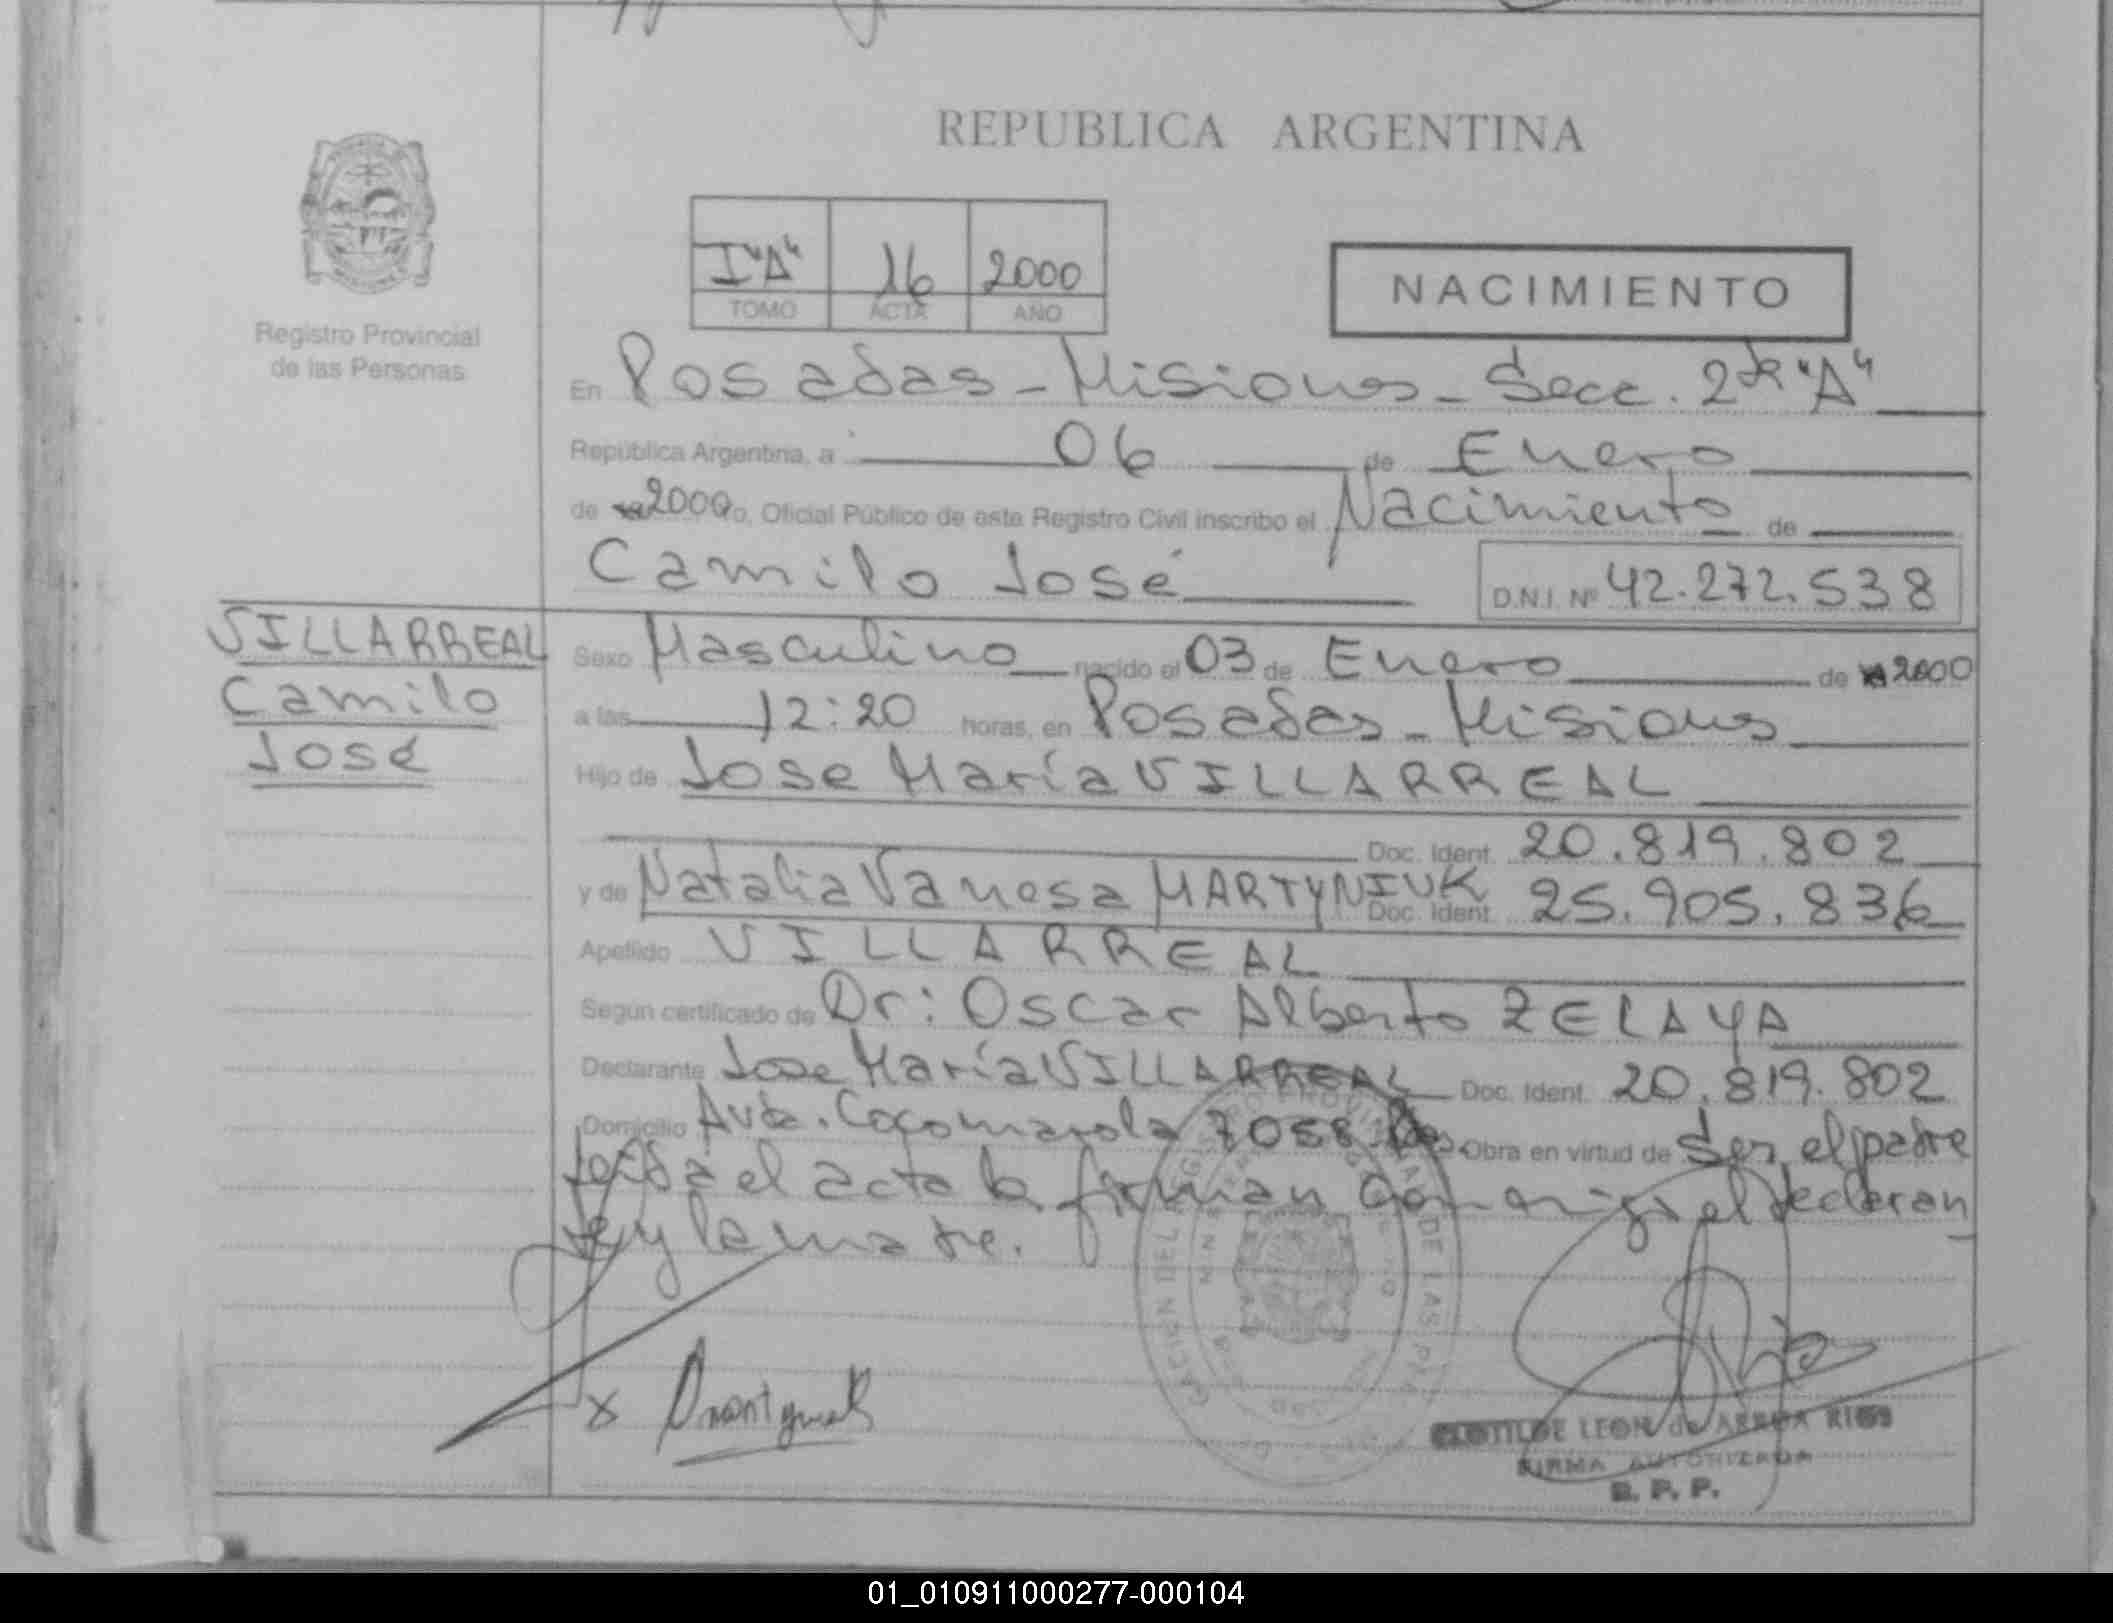 REPUBLICA ARGENTINA
Registro Provincial
de las Personas
I "A" 16 2000
TOMO ACTA AÑO
NACIMIENTO
En Posadas - Misiones - Secc. 2da "A"
República Argentina, a 06 de Enero
de 2000 o, Oficial Público de este Registro Civil inscribo el Nacimiento de
Camilo José D.N.I. Nº 42.272.538
VILLARREAL
Camilo
José
Sexo Masculino nacido el 03 de Enero de 2000
a las 12:20 horas, en Posadas - Misiones
Hijo de Jose María VILLARREAL
Doc. Ident. 20.819.802
y de Natalia Vanesa MARTYNIUK Doc. Ident. 25.905.836
Apellido VILLARREAL
Según certificado de Dr: Oscar Alberto ZELAYA
Declarante Jose María VILLARREAL Doc. Ident. 20.819.802
Domicilio Avda. Cocomarola 7058 Obra en virtud de Ser el padre
leida el acta la firman conmigo el declaran
te y la madre.
CLOTILDE LEON de ARRUA RIOS
FIRMA AUTORIZADA
R. P. P.
01_010911000277-000104